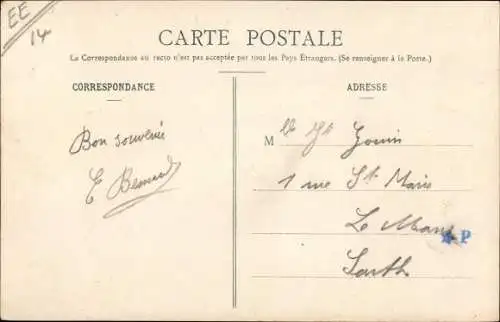 EE
14
CARTE POSTALE
La Correspondance au recto n'est pas acceptée par tous les Pays Étrangers. (Se renseigner à la Poste.)
CORRESPONDANCE
ADRESSE
Bon souvenir
E
M lle
1 rue Ste Marie
Le Mans
Sarthe
P